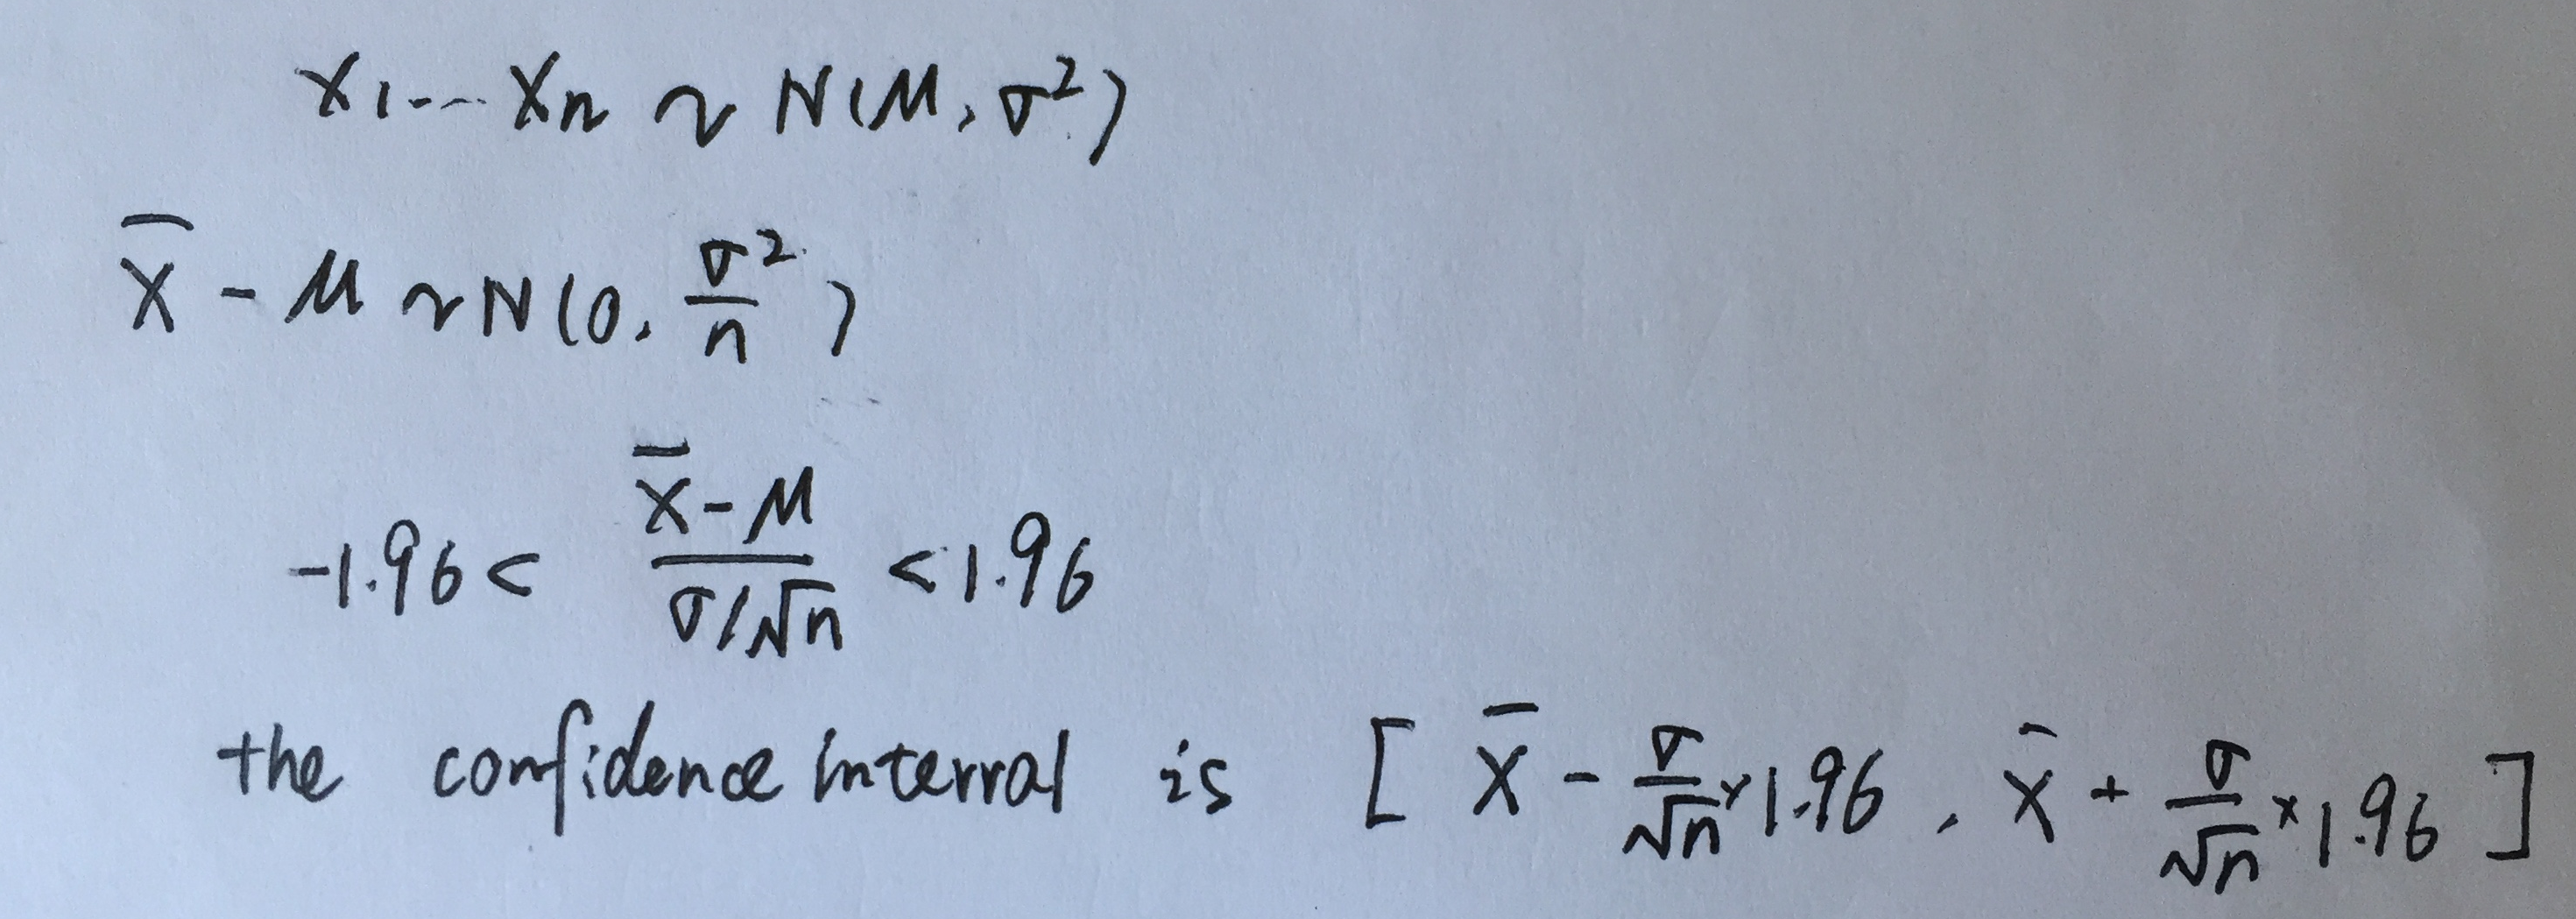 X₁... Xₙ ~ N(μ, σ²)
X̄ - μ ~ N(0, σ²/n)
-1.96 < (X̄ - μ)/(σ/√n) < 1.96
the confidence interval is [X̄ - σ/√n × 1.96, X̄ + σ/√n × 1.96]